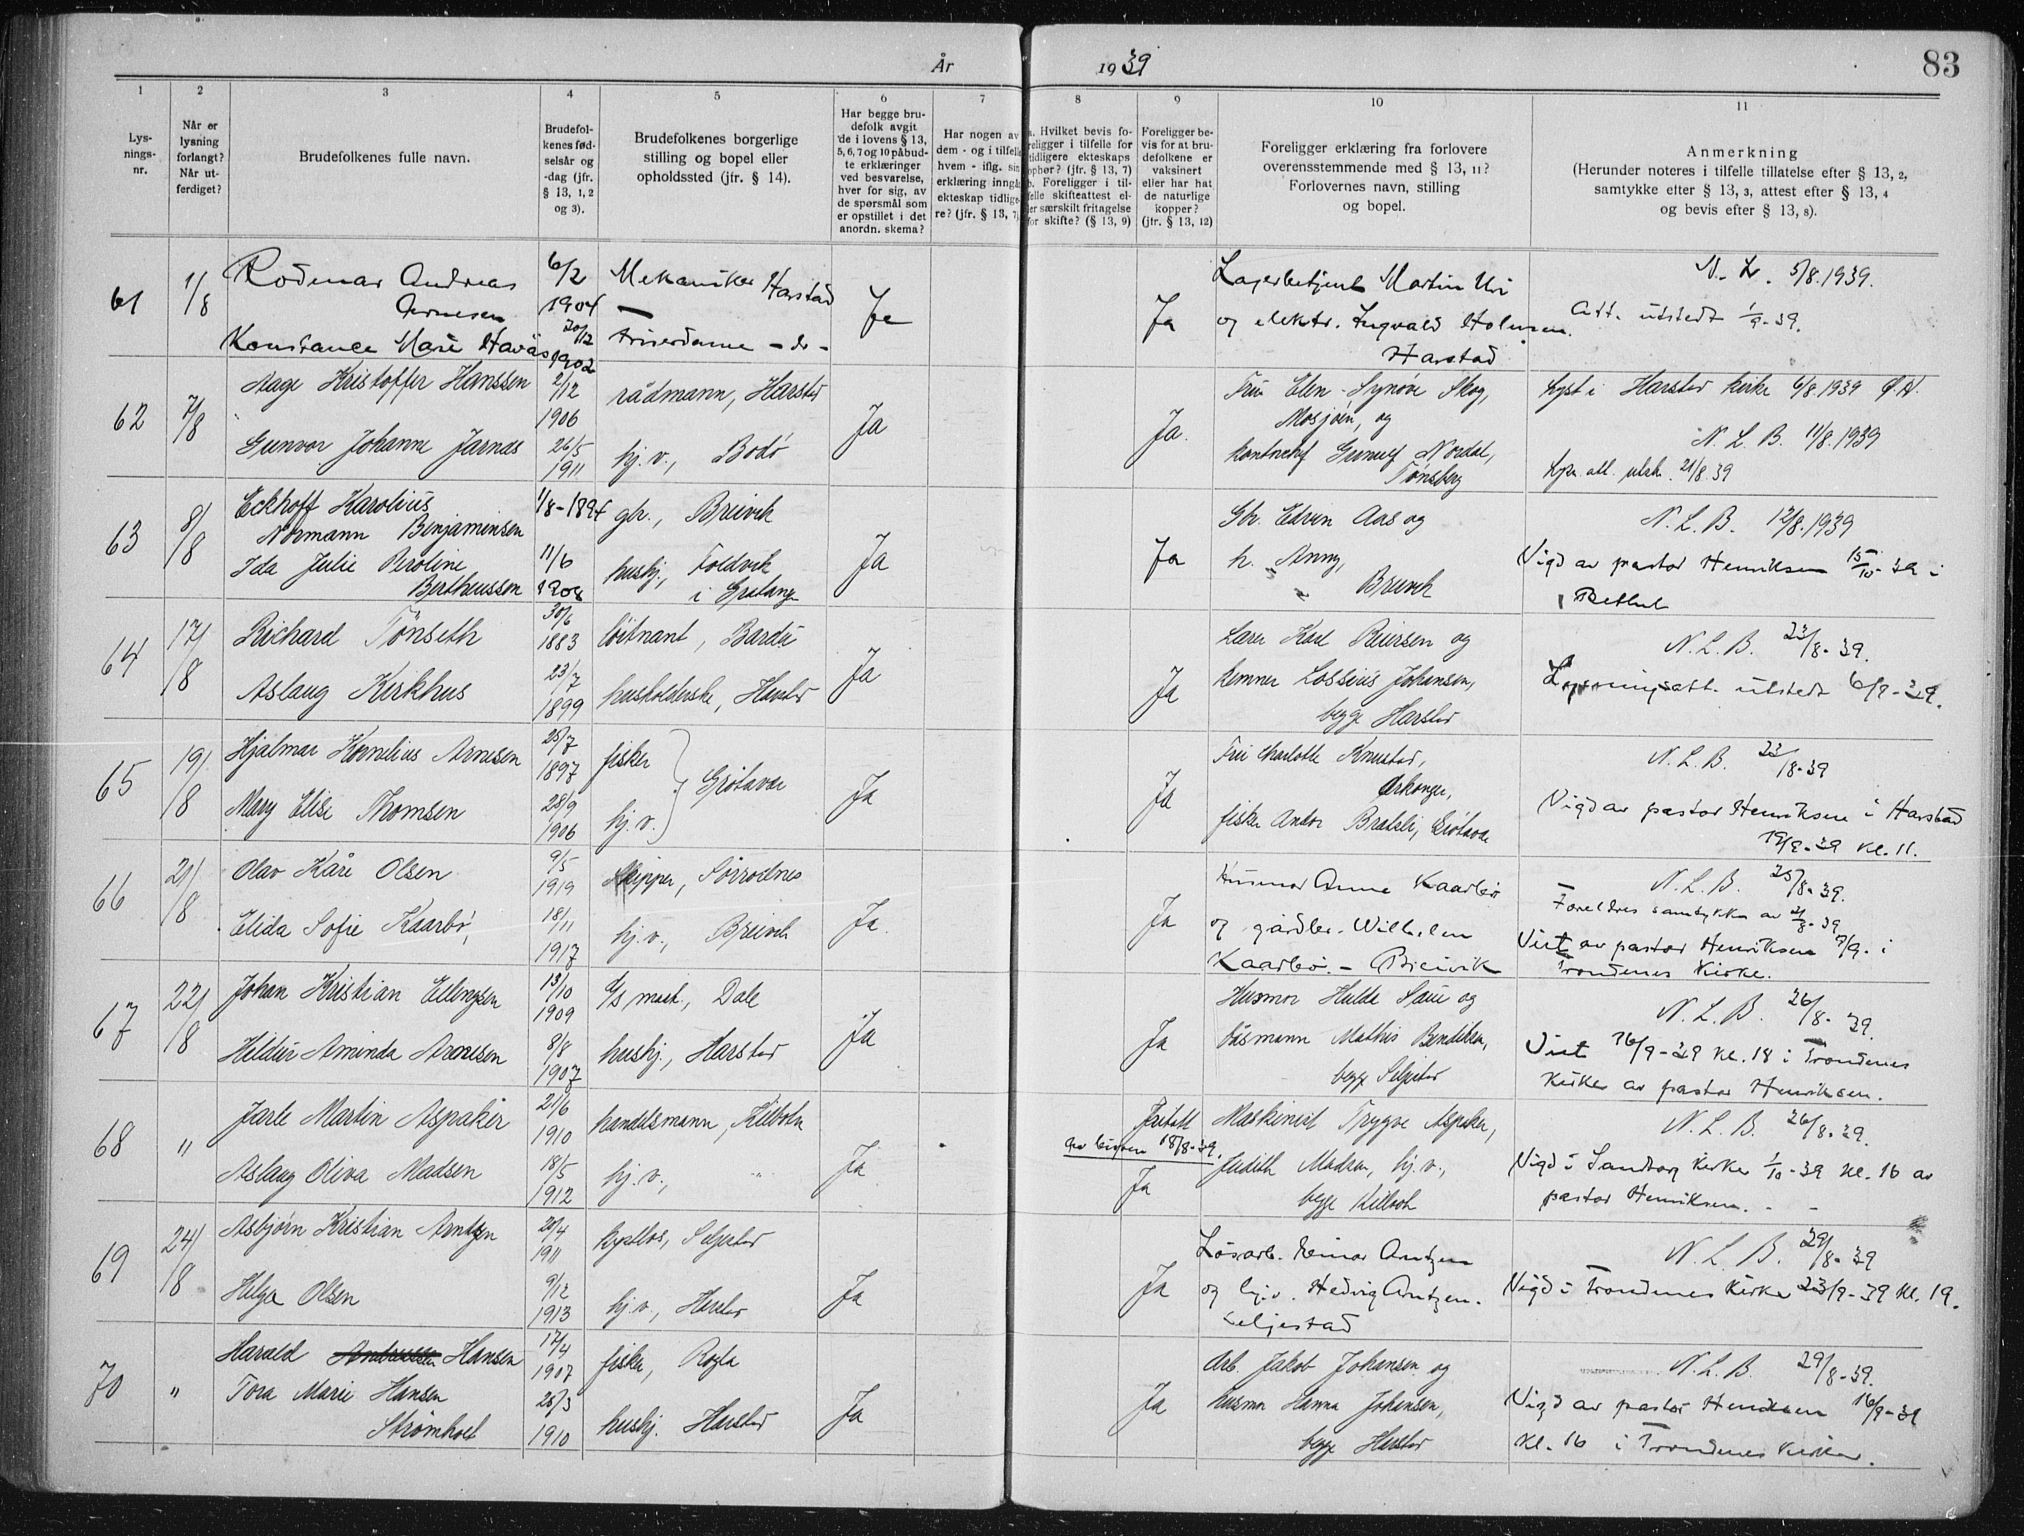 År 1939
83
1 2 3 4 5 6 7 8 9 10 11
Lys-
nings-
nr.
Når er
lysning
forlangt?
Når ut-
ferdiget?
Brudefolkenes fulle navn.
Brudefol-
kenes fød-
selsår og
-dag (jfr.
§ 13, 1, 2
og 3).
Brudefolkenes borgerlige
stilling og bopel eller
opholdssted (jfr. § 14).
Har begge bru-
defolk avgit
de i lovens § 13,
5, 6, 7 og 10 påbud-
te erklæringer
ved besvarelse,
hver for sig, av
de spørsmål som
er opstillet i det
anordn. skema?
Har nogen av
dem - og i tilfelle
hvem - iflg. sin
erklæring inngåt
ekteskap tidlige-
re? (jfr. § 13, 7)
a. Hvilket bevis fo-
religger i tilfelle for
tidligere ekteskaps
ophør? (jfr. § 13, 7)
b. Foreligger i til-
felle skifteattest el-
ler særskilt fritagelse
for skifte? (§ 13, 9)
Foreligger be-
vis for at bru-
defolkene er
vaksinert
eller har hat
de naturlige
kopper?
(jfr. § 13, 12)
Foreligger erklæring fra forlovere
overensstemmende med § 13, 11?
Forlovernes navn, stilling
og bopel.
Anmerkning
(Herunder noteres i tilfelle tillatelse efter § 13, 2,
samtykke efter § 13, 3, attest efter § 13, 4
og bevis efter § 13, 8).
61 1/8 Rodmar Andreas 6/2 Mekaniker Harstad Ja Ja Lagerbetjent Martin Uri N. L. 5/8.1939.
Arnesen 1904 og elektr. Ingvald Holmsen Att. utstedt 1/9-39.
Konstance Marie Haväs 20/12 1902 Friserdame - do - Harstad
62 7/8 Aage Kristoffer Hanssen 2/12 1906 rådmann, Harstad Ja Ja. Fru Elen Synøve Skog, Lyst i Harstad kirke 6/8.1939
Mosjøen, og N. L. B. 11/8.1939
Gunvor Johanne Jarnæs 26/5 1911 hj. v., Bodø kontorchef Gunulf Nordal, 21/8.39
Tønsberg
63 8/8 Eckhoff Karolius 1/8-1894 gbr., Breivik Ja Ja Gbr. Edvin Aas og N. L. B. 12/8.1939
Normann Benjaminsen h. Anny, Vigd av pastor Henriksen 15/10-39 i
Ida Julie Peroline 11/6 1908 hushj., Foldvik Breivik Bethel
Bertheussen i Gratangen
64 17/8 Richard Tönseth 30/6 1883 løitnant, Bardu Ja Ja Lærer Karl Reiersen og N. L. B. 23/8-39.
Aslaug Kirkhus 23/7 1899 husholderske, Harstad kemner Lossius Johansen, Lysningsatt. utstedt 6/9-39.
begge Harstad
65 19/8 Hjalmar Kornelius Arnesen 25/7 1897 fisker Grøtavær Ja Ja Fru Charlotte Knustad, N. L. B. 23/8-39
Mary Elise Thomsen 28/9 1906 hj. v. Vigd av pastor Henriksen i Harstad
fisker Andor Bratsli, Grøtavær 19/9-39 kl. 11.
66 21/8 Olav Kåre Olsen 9/5 1919 skipper, Sørrollnes Ja. Ja Husmor Anne Kaarbø N. L. B. 25/8-39.
Foreldres samtykke av 21/8-39
Elida Sofie Kaarbø, 18/11 1917 hj. v., Breivik og gårdbr. Wilhelm Viet av pastor Henriksen 9/9- i
Kaarbø. - Breivik Trondenes Kirke.
67 22/8 Johan Kristian Ellingsen 13/10 1909 Dale Ja Ja Husmor Hulda Saue og N. L. B. 26/8-39.
Hildur Aminda Arnesen 8/8 1907 hushj., Harstad båsmann Mathis Bendiksen, Viet 16/9-39 kl. 18 i Trondenes
begge Seljestad Kirke av pastor Henriksen.
68 " Jarle Martin Aspaker 21/6 1910 handelsmann, Kilbotn Ja Fritatt Maskinist Trygve Aspaker, N. L. B. 26/8-39.
18/8-39. Ja
Aslaug Oliva Madsen 18/5 1912 hj. v., " Judith Madsen, hj. v., Vigd i Sandtorg Kirke 1/10-39 kl. 16 av
begge Kilbotn pastor Henriksen. - -
69 24/8 Asbjørn Kristian Arntzen 20/4 1911 Seljestad Ja Ja Løsarb. Einar Arntzen N. L. B. 29/8-39
Helga Olsen 9/12 1913 hj. v., Harstad og hj. v. Hedvig Arntzen. Vigd i Trondenes Kirke 23/9-39 kl. 19.
Seljestad
70 " Harald Andreassen Hansen 17/4 1907 fisker, Rogla Ja Ja Arb. Jakob Johansen og N. L. B. 29/8-39.
Tora Marie Hansen 25/3 1910 hushj. Harstad husmor Hanna Johansen, Vigd av pastor Henriksen 16/9-39
Strømholt begge Harstad kl. 16 i Trondenes Kirke.